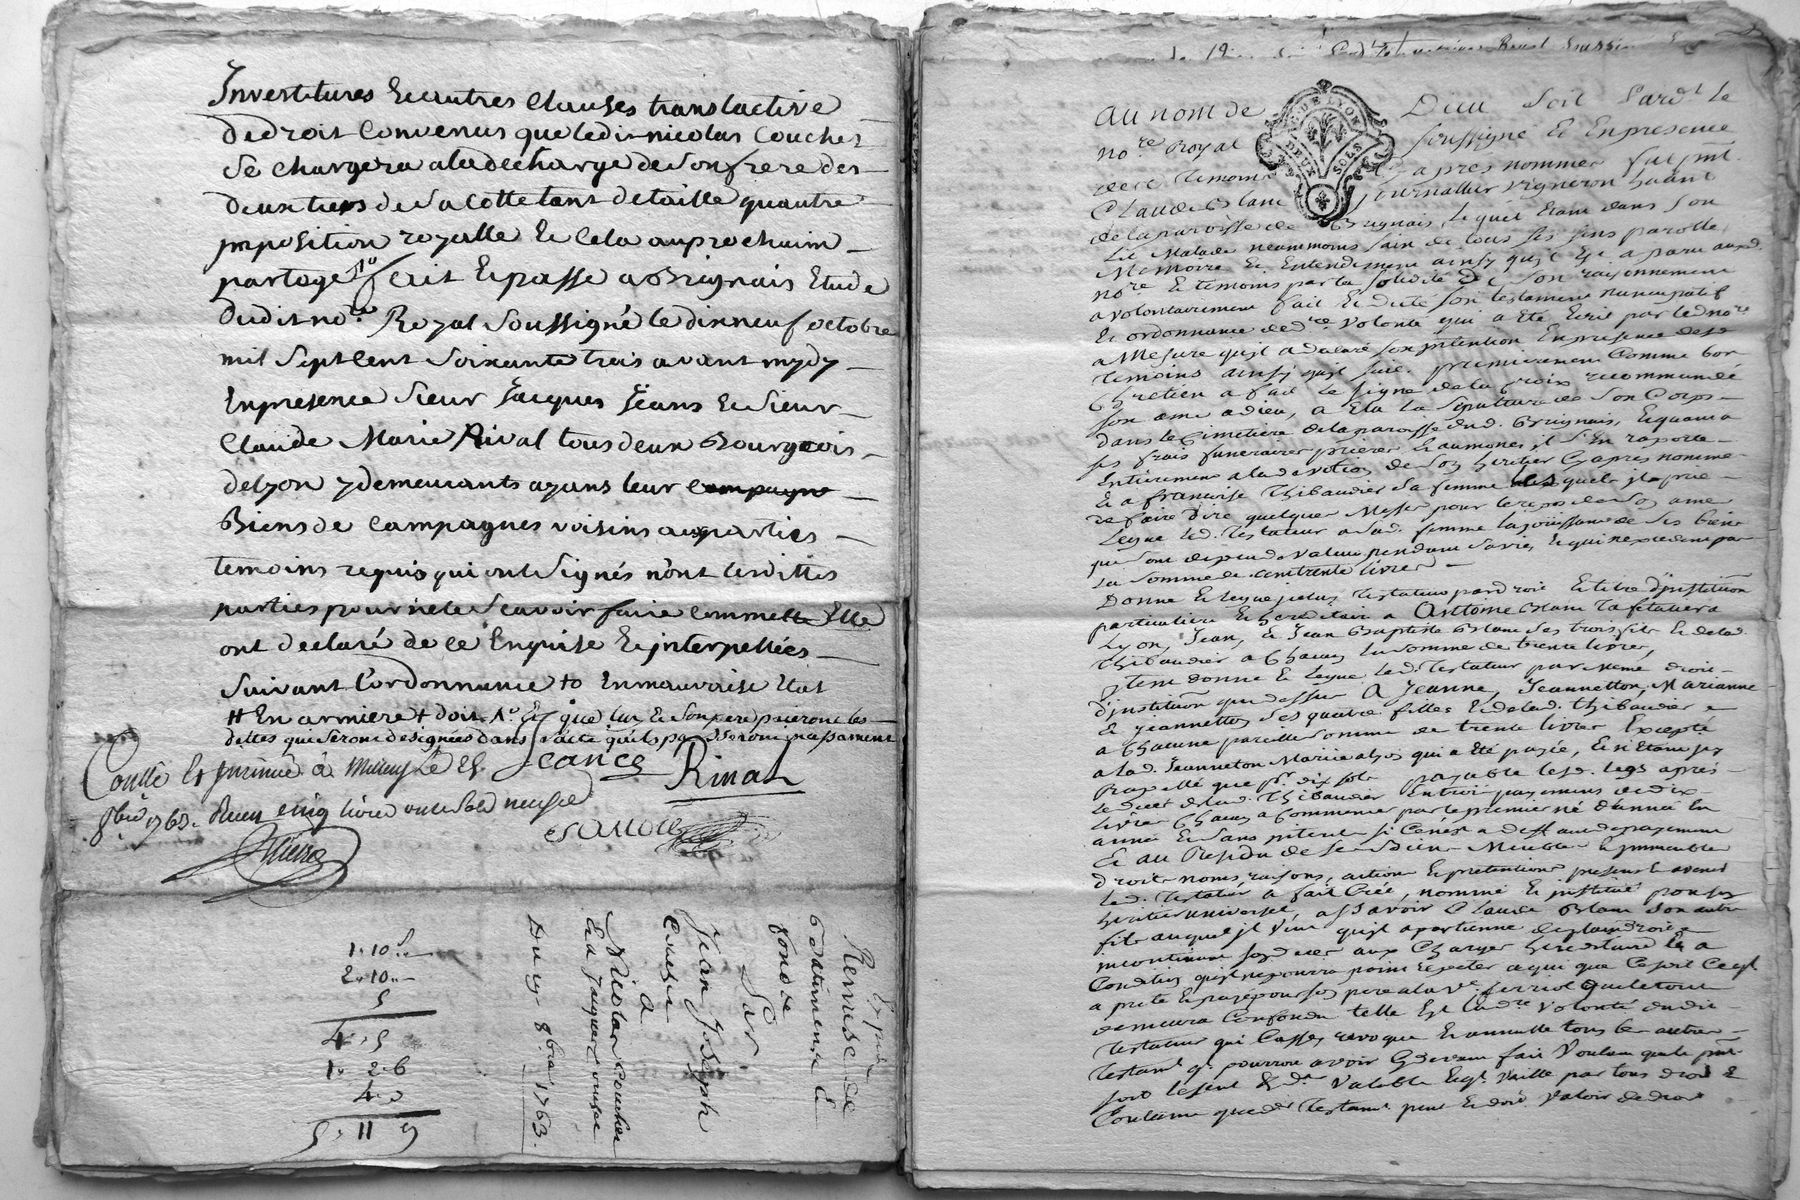 Investitures & autres clauses translactive
de droit convenus que ledit nicolas Couchet
se chargera a la decharge de son frere des
deux tiers de sa cotte tant de taille qu'autre
imposition royalle & cela au prochain
partage fait & passé a Brignais Etude
dudit no.re Royal soussigné le dix neuf octobre
mil sept cent soixante trois avant mydy
En presence sieur Jacques Jeans & sieur
Claude Marie Rival tous deux Bourgeois
de lyon y demeurants ayans leur campagne
Biens de campagnes voisins aux parties
temoins requis qui ont signés n'ont lesdittes
parties pour ne le scavoir faire comme Elle
ont declaré de ce Enquise & interpellées
suivant l'ordonnance to En mauvaise Etat
# En arriere + doit & que lui & son pere paieront les
dettes qui seront designées dans l'acte qu'ils passeront incessament
Jeans Rival
Conllé & insinué à Millery le 25
8bre 1763. Recu cinq livres onze sols neuf d
1. 10 s
2. 10
5
4. 5
1. 2. 6
4. 3
5. 11 9
Remise de
batiments &
fonds
Par
Jean Joseph
Couchet
A
Nicolas Couchet
Et a Jacques
Du 19 8bre 1763.
GEN DE LYON
DEUX SOLS
Au nom de Dieu soit Pard.t le
no.re Royal soussigné & En presence
des temoins cy apres nommer fut p.nt
Claude Blanc journallier vigneron habitant
de la paroisse de Brignais, lequel Etant dans son
lit Malade neammoins sain de tous ses sens parolle
Memoire & Entendement ainsy qu'il Est a paru aud.
no.re & temoins par la solidité de son raisonnement
a volontairement fait & dicté son testament nuncupatif
& ordonnance de d.re volonté qui a Eté Ecrit par led no.re
a Mesure qu'il a declaré son intention En presence desd
temoins ainsy que suit. premierement Comme bon
Chretien a fait le signe de la Croix recommandé
son ame a dieu, a Elu la sepulture de son Corps
dans le Cimetiere de la paroisse dud. Brignais, & quant a
ses frais funeraires prieres & aumones, il s'En raporte
Entierement a la devotion de son heritier Cy apres nommé
& a françoise Thibaudier sa femme lesquels il prie
de faire dire quelques Messes pour le repos de son ame
Legue led. Testateur a sad. femme la jouissance de ses biens
qui sont de peu de valeur pendant sa vie, & qui n'excedent pas
la somme de cent trente livres
Donne & legue ledit Testateur par droit & titre d'institution
particuliere & hereditaire a Antoine Blanc taffetatier a
Lyon, Jean, & Jean Baptiste Blanc ses trois fils & de lad.
Thibaudier a Chacun la somme de trente livres,
Item donne & legue led. Testateur par Meme droit
d'institution que dessus A Jeanne, Jeannetton, Marianne
& Jeannetton ses quatre filles & de lad. Thibaudier
a Chacune pareille somme de trente livres Excepté
a lad. Jeanneton qui a Eté payée, & n'Etant
rapellé que p.r dix sols payable lesd. legs aprés
le decet de lad. Thibaudier En trois payemens de dix
livres Chacun a commencer par le premier né d'année En
année & sans interet si Ce n'est a deffaut de payement
& Au Residu de ses Biens Meubles & immeubles
droits noms raisons, actions & pretentions presents & avenir
led. Testateur a fait Créé, nommé & institué pour son
heritier universel, assavoir Claude Blanc son autre
fils auquel il veut qu'il apartienne de plain droit
incontinent son deces aux Charges hereditaire & a
Condition qu'il ne pourra point repeter a qui que Ce soit Ce qu'il
a preté & payé pour son pere a la v.e ferriol que le tout
demeura Confondu telle Est la d.re volonté dudit
Testateur qui Casse, revoque & annulle tous les autres
Testam.t q. pourroit avoir Cy devant fait Voulant que le p.nt
soit le seul & d.er valable & qu'il vaille par tous droit &
Coutume que d.er testam.t peut & doit valoir de droit